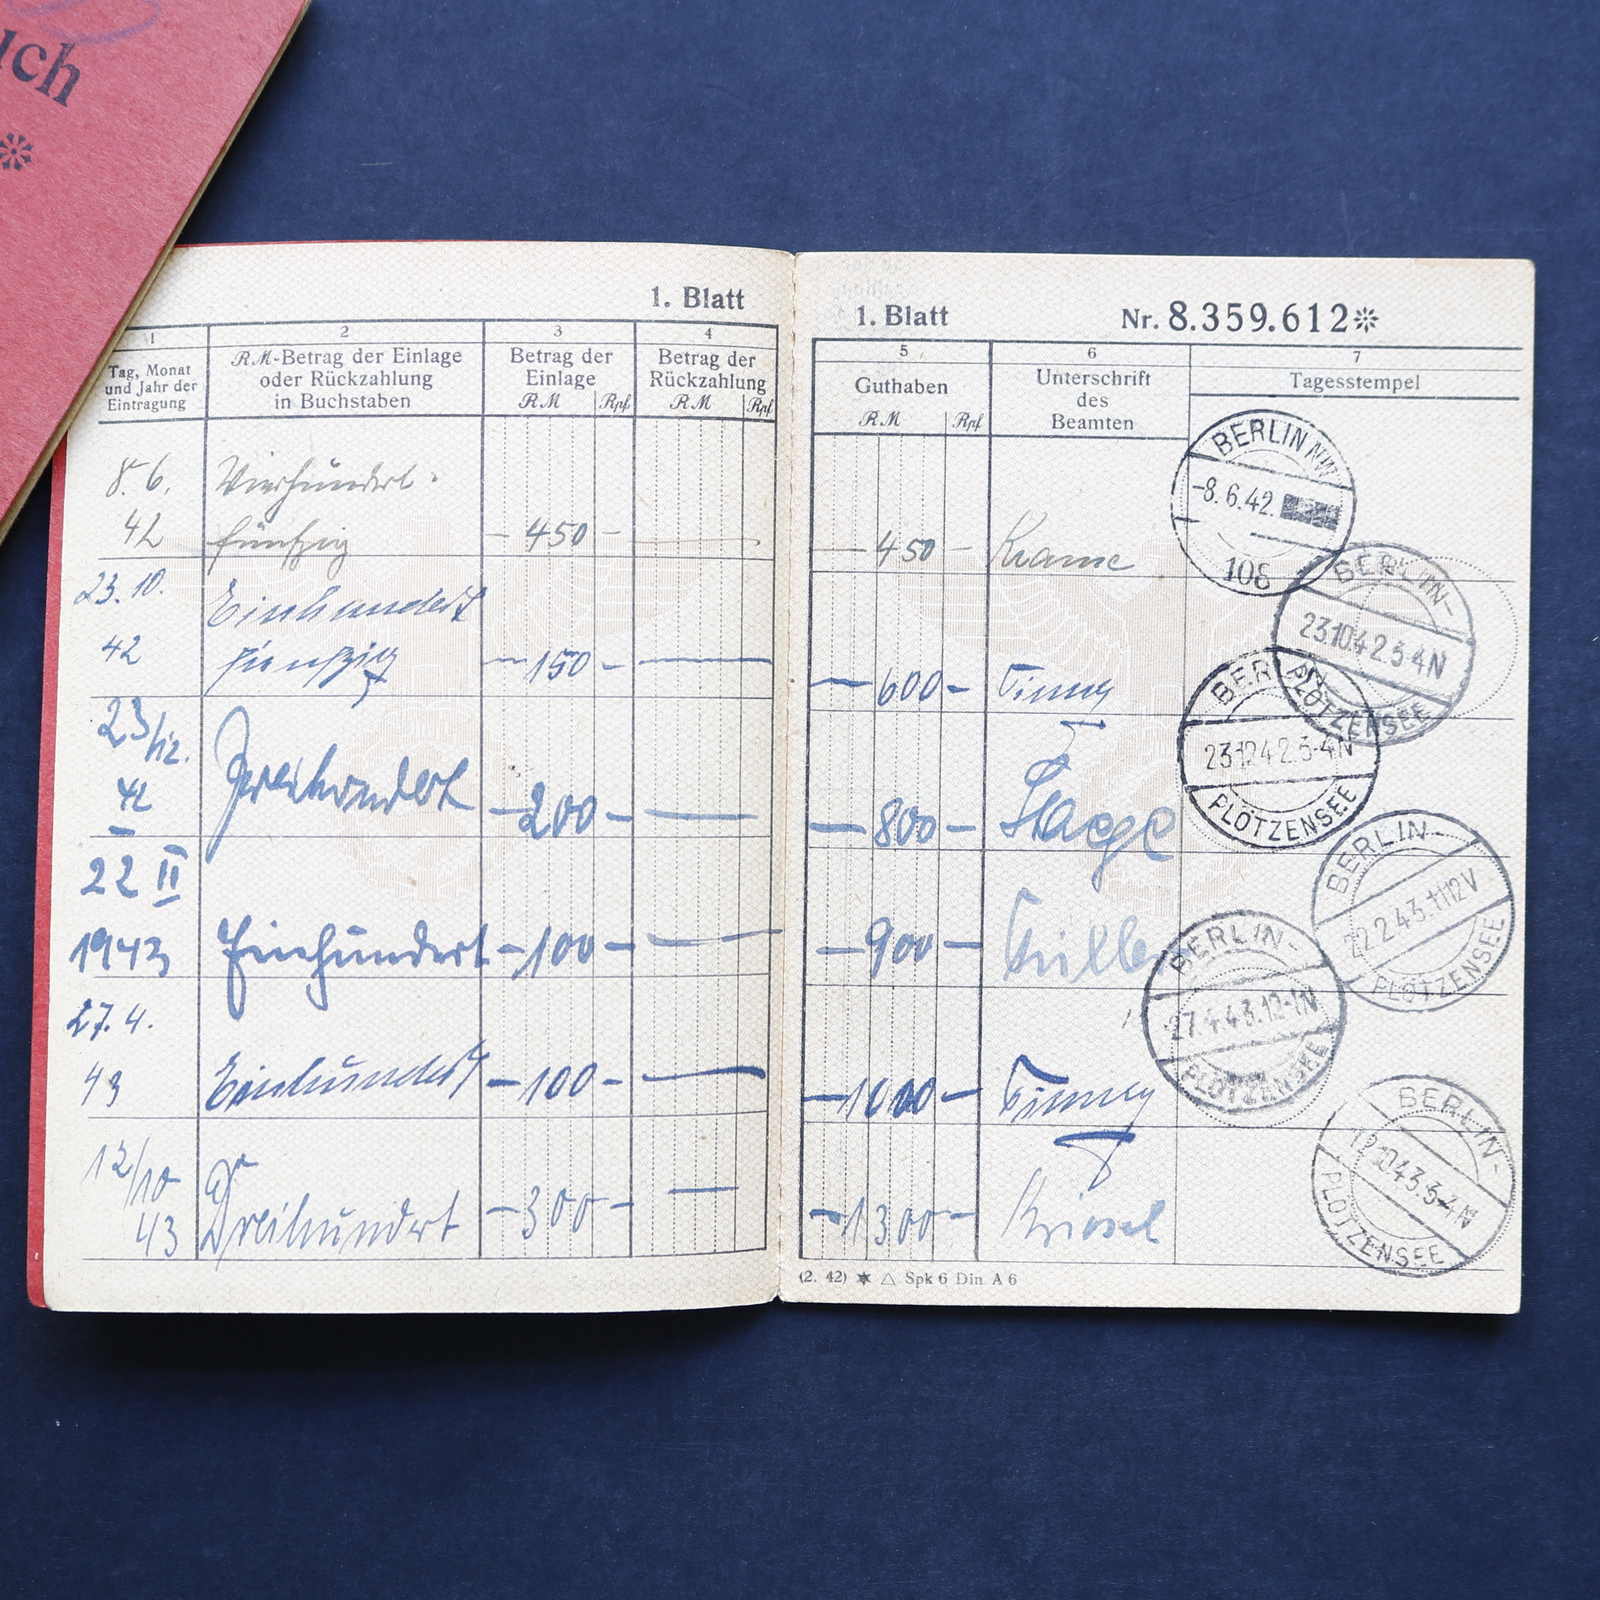 uch
1. Blatt
1
2
3
4
Tag, Monat
und Jahr der
Eintragung
RM-Betrag der Einlage
oder Rückzahlung
in Buchstaben
Betrag der
Einlage
RM Rpf
Betrag der
Rückzahlung
RM Rpf
8. 6.
42
Vierhundert-
fünfzig
- 450 -
23. 10.
42
Einhundert
fünfzig
- 150 -
23/12.
42
Zweihundert
- 200 -
22 II
1943
Einhundert
- 100 -
27. 4.
43
Einhundert
- 100 -
12/10
43
Dreihundert
- 300 -
1. Blatt
Nr. 8.359.612
5
6
7
Guthaben
RM Rpf
Unterschrift
des
Beamten
Tagesstempel
- 450 -
- 600 -
- 800 -
- 900 -
- 1000 -
- 1300 -
BERLIN NW
-8.6.42.
108
BERLIN-
23.10.42.3-4N
PLÖTZENSEE
BERLIN-
23.12.42.3-4N
PLÖTZENSEE
BERLIN-
22.2.43.11-12V
PLÖTZENSEE
BERLIN-
27.4.43.12-1N
PLÖTZENSEE
BERLIN-
12.10.43.3-4N
PLÖTZENSEE
(2. 42) Spk 6 Din A 6